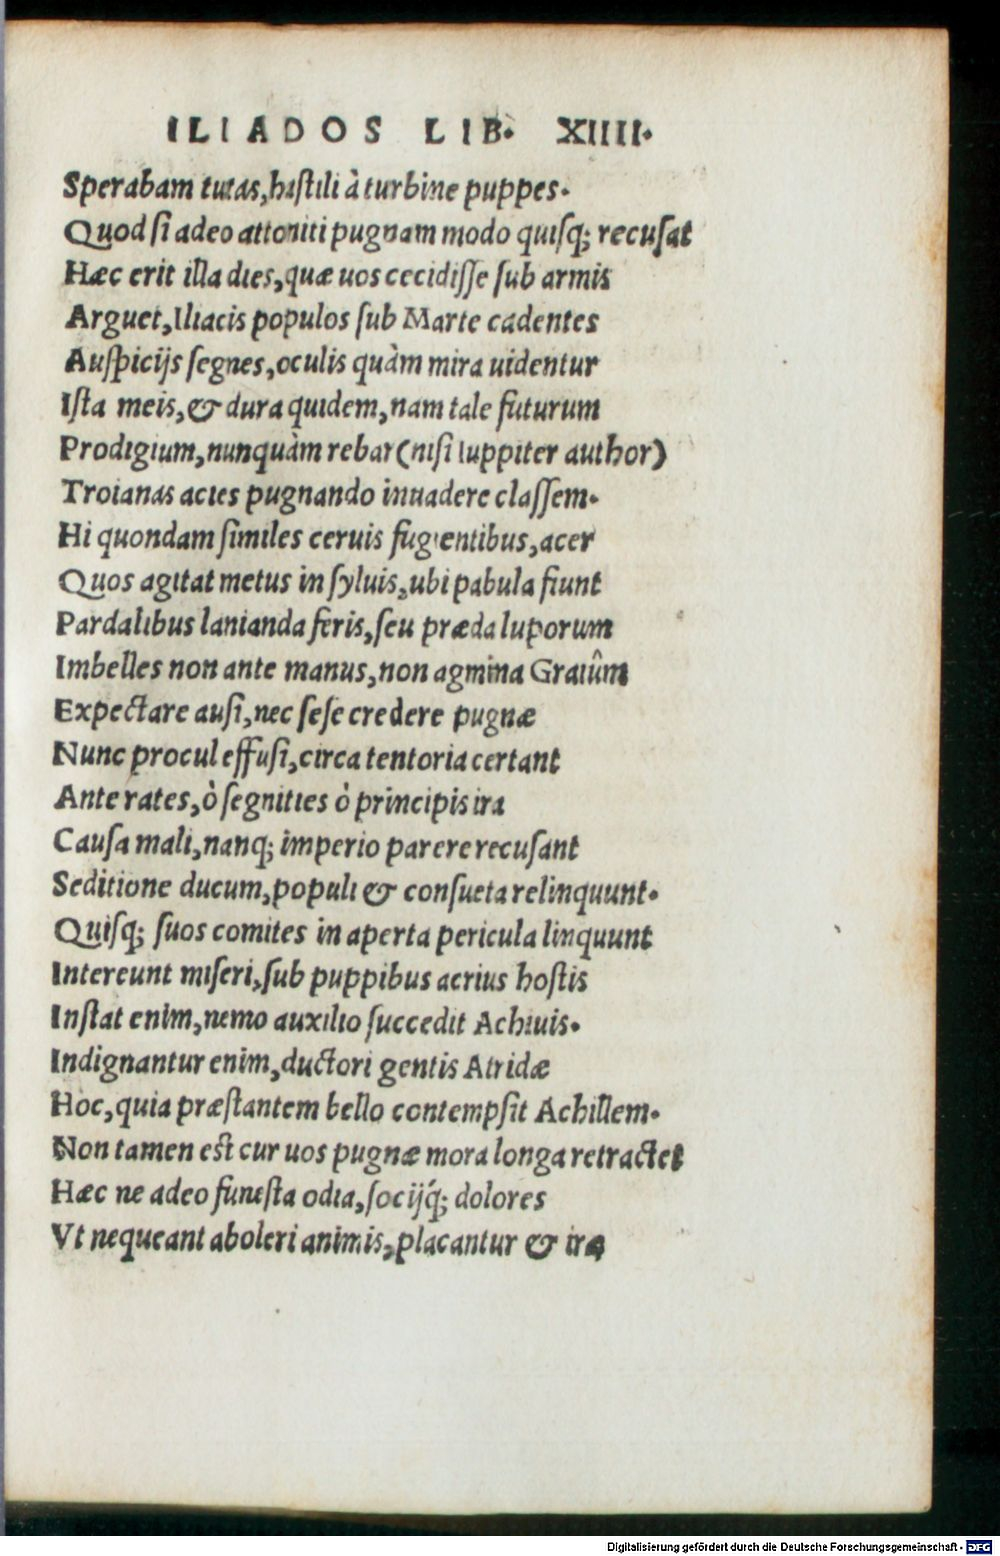 ILIADOS LIB. XIIII.
Sperabam tutas, hastili à turbine puppes.
Quod si adeo attoniti pugnam modo quisq; recusat
Hæc erit illa dies, quæ uos cecidisse sub armis
Arguet, Iliacis populos sub Marte cadentes
Auspicijs segnes, oculis quàm mira uidentur
Ista meis, & dura quidem, nam tale futurum
Prodigium, nunquàm rebar (nisi Iuppiter author)
Troianas acies pugnando inuadere classem.
Hi quondam similes ceruis fugientibus, acer
Quos agitat metus in syluis, ubi pabula fiunt
Pardalibus lanianda feris, seu præda luporum
Imbelles non ante manus, non agmina Graiûm
Expectare ausi, nec sese credere pugnæ
Nunc procul effusi, circa tentoria certant
Ante rates, ò segnities ò principis ira
Causa mali, nanq; imperio parere recusant
Seditione ducum, populi & consueta relinquunt.
Quisq; suos comites in aperta pericula linquunt
Intereunt miseri, sub puppibus acrius hostis
Instat enim, nemo auxilio succedit Achiuis.
Indignantur enim, ductori gentis Atridæ
Hoc, quia præstantem bello contempsit Achillem.
Non tamen est cur uos pugnæ mora longa retractet
Hæc ne adeo funesta odia, socijq́; dolores
Vt nequeant aboleri animis, placantur & iræ
Digitalisierung gefördert durch die Deutsche Forschungsgemeinschaft - DFG